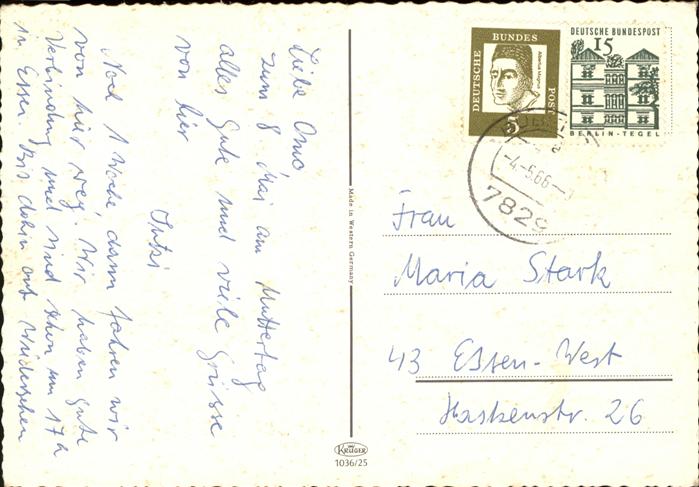 Liebe Omo
zum 8. Mai am Muttertag
alles Gute und viele Grüsse
von hier
Noch 1 Woche, dann fahren wir
von hier weg. Wir haben gute
Verbindung und sind schon um 17h
in Essen. Bis dahin auf Wiedersehen
Made in Western Germany
KRÜGER
1036/25
DEUTSCHE BUNDESPOST
5
Albertus Magnus
DEUTSCHE BUNDESPOST
15
BERLIN-TEGEL
-4.-5.66-
7829
Frau
Maria Stark
43 Essen-West